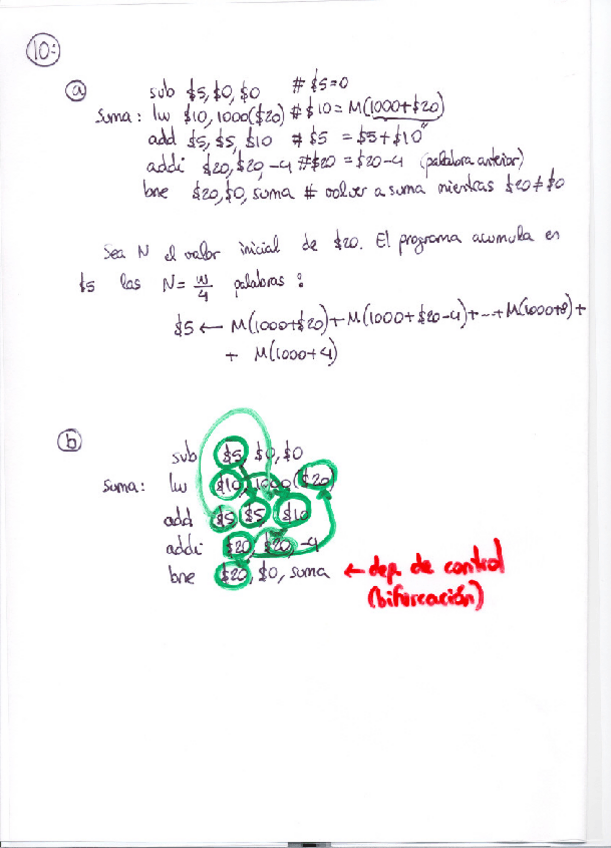 10:
a
sub $5, $0, $0 # $5=0
Suma: lw $10, 1000($20) # $10 = M(1000+$20)
add $5, $5, $10 # $5 = $5+$10
addi $20, $20 -4 # $20 = $20-4 (palabra anterior)
bne $20, $0, suma # volver a suma mientras $20≠$0
Sea N el valor inicial de $20. El programa acumula en
$5 las N= w/4 palabras :
$5 ← M(1000+$20)+M(1000+$20-4)+---+M(1000+8)+
+ M(1000+4)
b
sub $5, $0, $0
Suma: lw $10, 1000($20)
add $5 $5, $10
addi $20, $20, -4
bne $20, $0, suma ← dep. de control
(bifurcación)